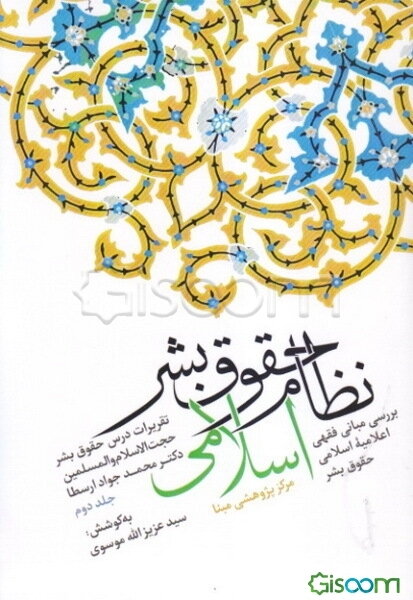 Gisoom
نظام حقوق بشر
اسلامی
بررسی مبانی فقهی
اعلامیهٔ اسلامی
حقوق بشر
تقریرات درس حقوق بشر
حجت‌الاسلام‌والمسلمین
دکتر محمد جواد ارسطا
جلد دوم
مرکز پژوهشی مبنا
به‌کوشش:
سید عزیزالله موسوی
Gisoom